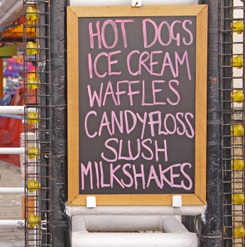 HOT DOGS
ICE CREAM
WAFFLES
CANDYFLOSS
SLUSH
MILKSHAKES